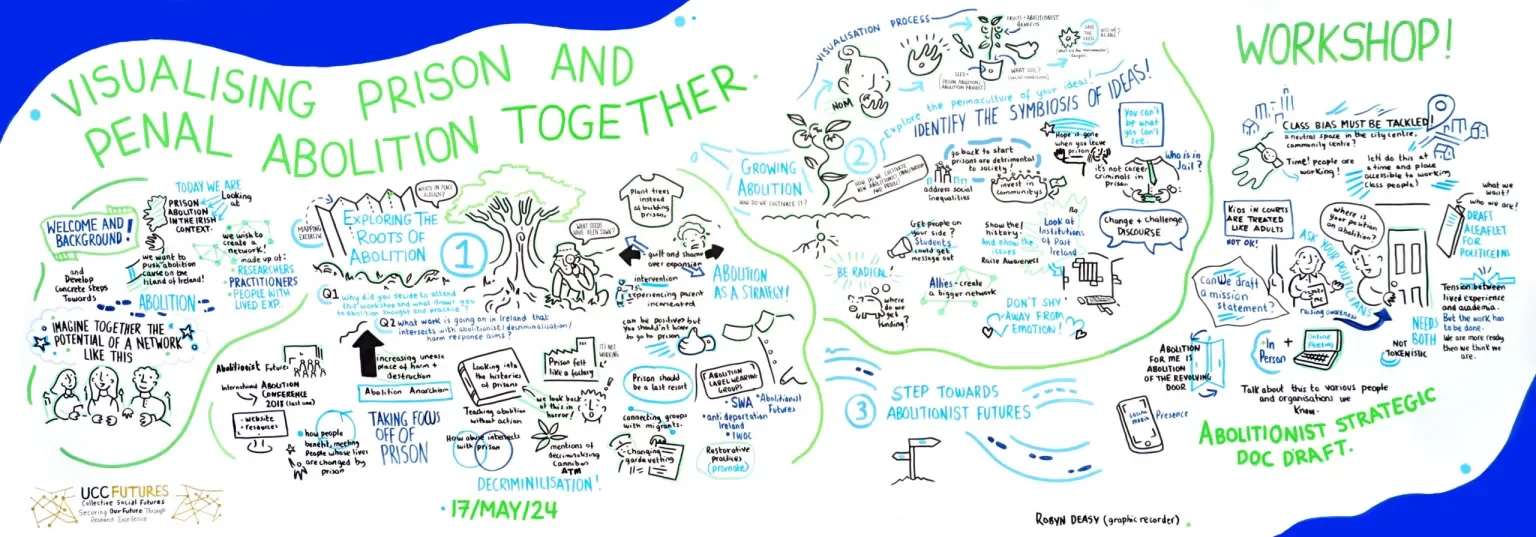 VISUALISING PRISON AND
PENAL ABOLITION TOGETHER.
WELCOME AND
BACKGROUND!
TODAY WE ARE
Looking
at
PRISON
ABOLITION
IN THE IRISH
CONTEXT.
we wish to
create a
network!
made up of:
RESEARCHERS
PRACTITIONERS
PEOPLE WITH
LIVED EXP.
we want to
push abolition
cause on the
Island of Ireland!
and
Develop
Concrete Steps
Towards
ABOLITION
IMAGINE TOGETHER THE
POTENTIAL OF A NETWORK
LIKE THIS
UCC FUTURES
Collective Social Futures
Securing Our Future Through
Research Excellence
MAPPING
EXERCISE
WHAT'S IN PLACE
ALREADY?
EXPLORING THE
ROOTS OF
ABOLITION
1
WHAT SEEDS
HAVE BEEN SOWN?
Plant trees
instead
of building
prison.
Q1
why did you decide to attend
this workshop and what draws you
to abolition thought and practice?
Q2 what work is going on in Ireland that
intersects with abolitionist/decriminalisation/
harm response aims?
guilt and shame
over expansion
intervention
experiencing parent
incarcerated
ABOLITION
AS A STRATEGY!
can be positives but
you shouldn't have
to go to prison
Abolitionist Futures
International ABOLITION
CONFERENCE
2018 (last one)
• website
• resources
increasing unease
place of harm +
destruction
Abolition Anarchism
TAKING FOCUS
OFF OF
PRISON
how people
benefit, meeting
People whose lives
are changed by
prison
Looking into
the histories
of prisons
Teaching abolition
without action
How abuse intersects
with prison
Prison felt
like a factory
IT'S NOT
WORKING
we look back
at this in
horror!
mentions of
decriminalising
Cannabis
ATM
DECRIMINILISATION!
Prison should
be a last resort
connecting groups
with migrants.
Changing
garda vetting
ABOLITION
LABEL WEARING
GROUPS
SWA • Abolitionist
Futures
• anti deportation
Ireland
• IWOC
Restorative
practices
(promote)
• 17/MAY/24
GROWING
ABOLITION
HOW DO WE CULTIVATE IT?
VISUALISATION PROCESS
NOM
FRUITS = ABOLITIONIST
BENEFITS
SEED =
PRISON ABOLITION/
ABOLITION PROJECT
WHAT SOIL?
(social conditions)
SAVE
THE
SEED
2
Explore the permaculture of your ideas!
IDENTIFY THE SYMBIOSIS OF IDEAS!
go back to start
prisons are detrimental
to society!
address social
inequalities
invest in
communitys
Hope is gone
when you leave
prison
it's not career
criminals in
prison
You can't
be what
you can't
see.
Who is in
Jail?
Change + Challenge
DISCOURSE
BE RADICAL!
Get people on
your side?
Students
could get
message out
Show the
history
And show the
issues
Raise Awareness
Look at
Institutions
of Past
Ireland
where do
we get
funding?
Allies - create
a bigger network
DON'T SHY
AWAY FROM
EMOTION!
3
STEP TOWARDS
ABOLITIONIST FUTURES
WORKSHOP!
CLASS BIAS MUST BE TACKLED!
a neutral space in the city centre.
community centre?
Time! people are
working!
let's do this at
a time and place
accessible to working
class people?
KIDS IN COURTS
ARE TREATED
LIKE ADULTS
NOT OK!
where is
your position
on abolition?
ASK YOUR POLITICIANS
raising awareness
what we
want!
who we are!
DRAFT
A LEAFLET
FOR
POLITICIANS
Can We draft
a mission
statement?
Tension between
lived experience
and academia.
But the work has
to be done.
We are more ready
then we think we
are.
NEEDS
BOTH
NOT
TOKENISTIC
ABOLITION
FOR ME IS
ABOLITION
OF THE REVOLVING
DOOR
In
Person
+
Online
Meeting
Talk about this to various people
and organisations we
know.
Social
media
Presence
ABOLITIONIST STRATEGIC
DOC DRAFT.
ROBYN DEASY (graphic recorder)